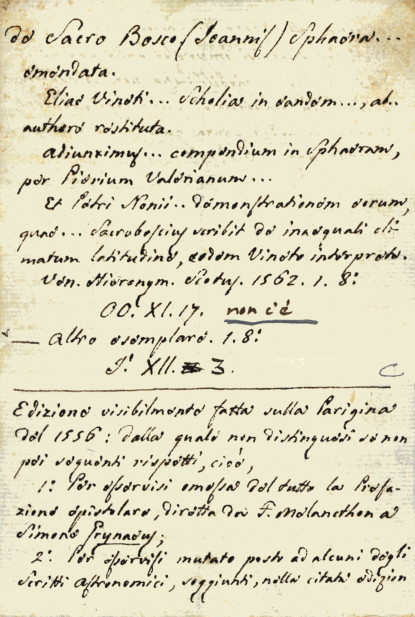 de Sacro Bosco (Joannis) Sphaera...
emendata.
Eliae Vineti... Scholia in eandem..., ab
authore restituta.
Adiunximus... compendium in Sphaeram,
per Pierium Valerianum...
Et Petri Nonii... demonstrationem eorum,
quae... Sacroboscius scribit de inaequali cli-
matum latitudine, eodem Vineto interprete.
Ven. Hieronym. Scotus. 1562. 1. 8º
OO. XI. 17. non c'è
— Altro esemplare. 1. 8º
J. XII. 3. C
Edizione visibilmente fatta sulla Parigina
del 1556: dalla quale non distinguesi se non
pei seguenti rispetti, cioè,
1º Per esservisi omessa del tutto la Prefa-
zione epistolare, diretta da F. Melancthon a
Simone Grynaeus;
2º Per esservisi mutato posto ad alcuni degli
Scritti Astronomici, soggiunti, nella citata edizion